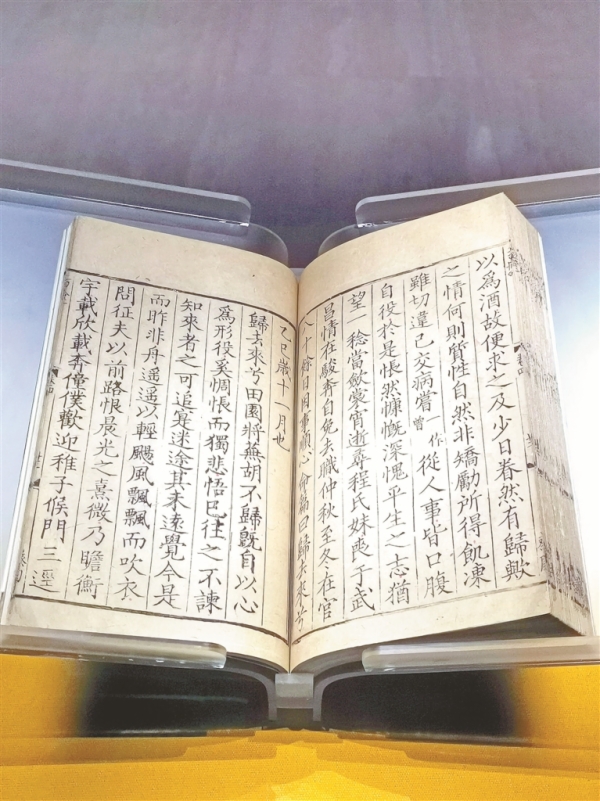 以為酒故便求之及少日眷然有歸歟
之情何則質性自然非矯勵所得飢凍
雖切違己交病嘗一作曾從人事皆口腹
自役於是悵然慷慨深愧平生之志猶
望 稔當斂裳宵逝尋程氏妹喪于武
昌情在駿奔自免去職仲秋至冬在官
八十餘日因事順心命篇曰歸去來兮
乙巳歲十一月也
歸去來兮田園將無胡不歸旣自以心
為形役奚惆悵而獨悲悟已往之不諫
知來者之可追寔迷途其未遠覺今是
而昨非舟遥遥以輕颺風飄飄而吹衣
問征夫以前路恨晨光之熹微乃瞻衡
宇載欣載奔僮僕歡迎稚子候門三逕